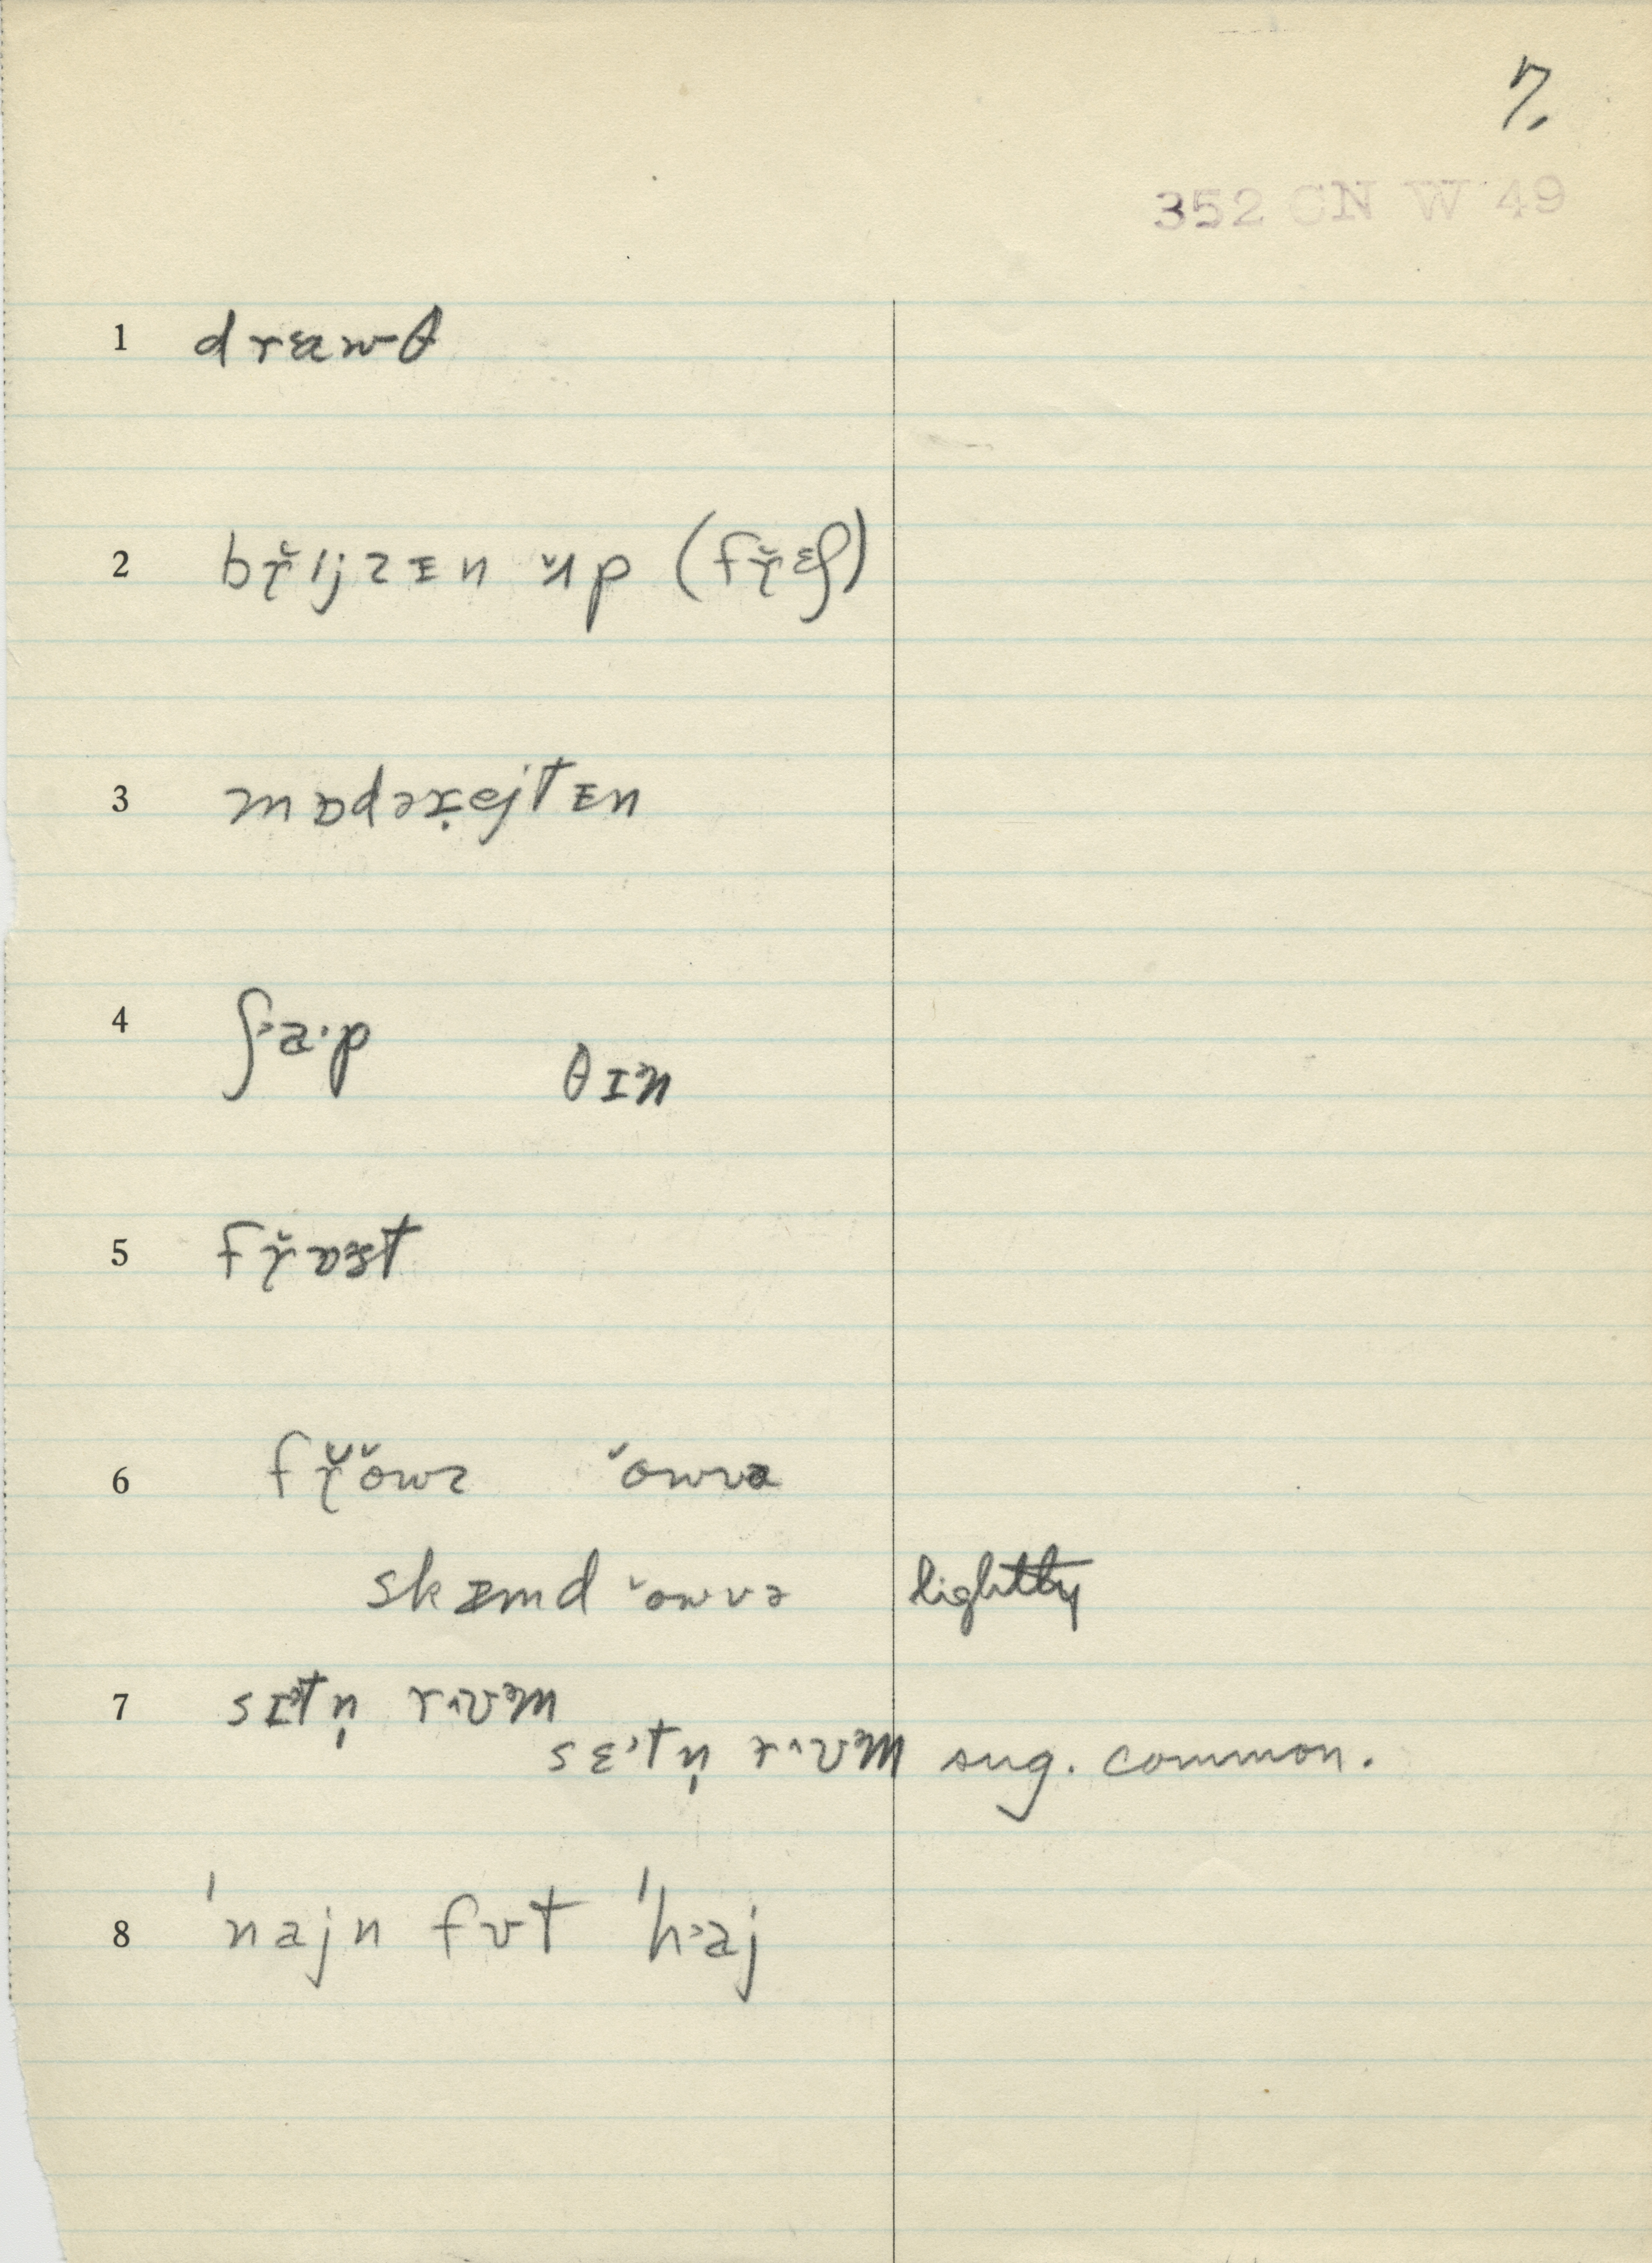 7.
352 CN W 49
1 dræwθ
2 bř̥ijzɪn ʌ̆p (fř̥ɛʃ)
3 mɒdərejtɪn
4 ʃ˃a·p θɪ˃n
5 fř̥ɒst
6 fř̥ŏwz ˇowvə
skɪmd ˇowvə lightly
7 sɪ˃tn̩ rʌʊ˃m
sɛ˃tn̩ r^ʊ˃m sug. common.
8 'najn fʊt 'h˃aj